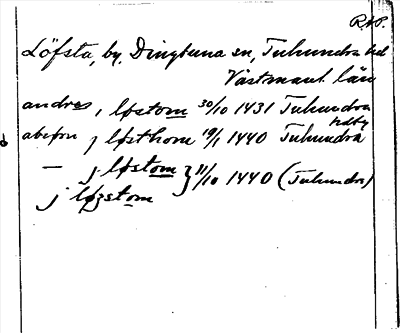 RAP.
Löfsta, by, Dingtuna sn, Tuhundra hd
Västmanl. län
andres, i løstom 30/10 1431 Tuhundra
abiørn j løsthom 19/1 1440 Tuhundra hdby
— j løstom } 11/10 1440 (Tuhundra)
j løzstom